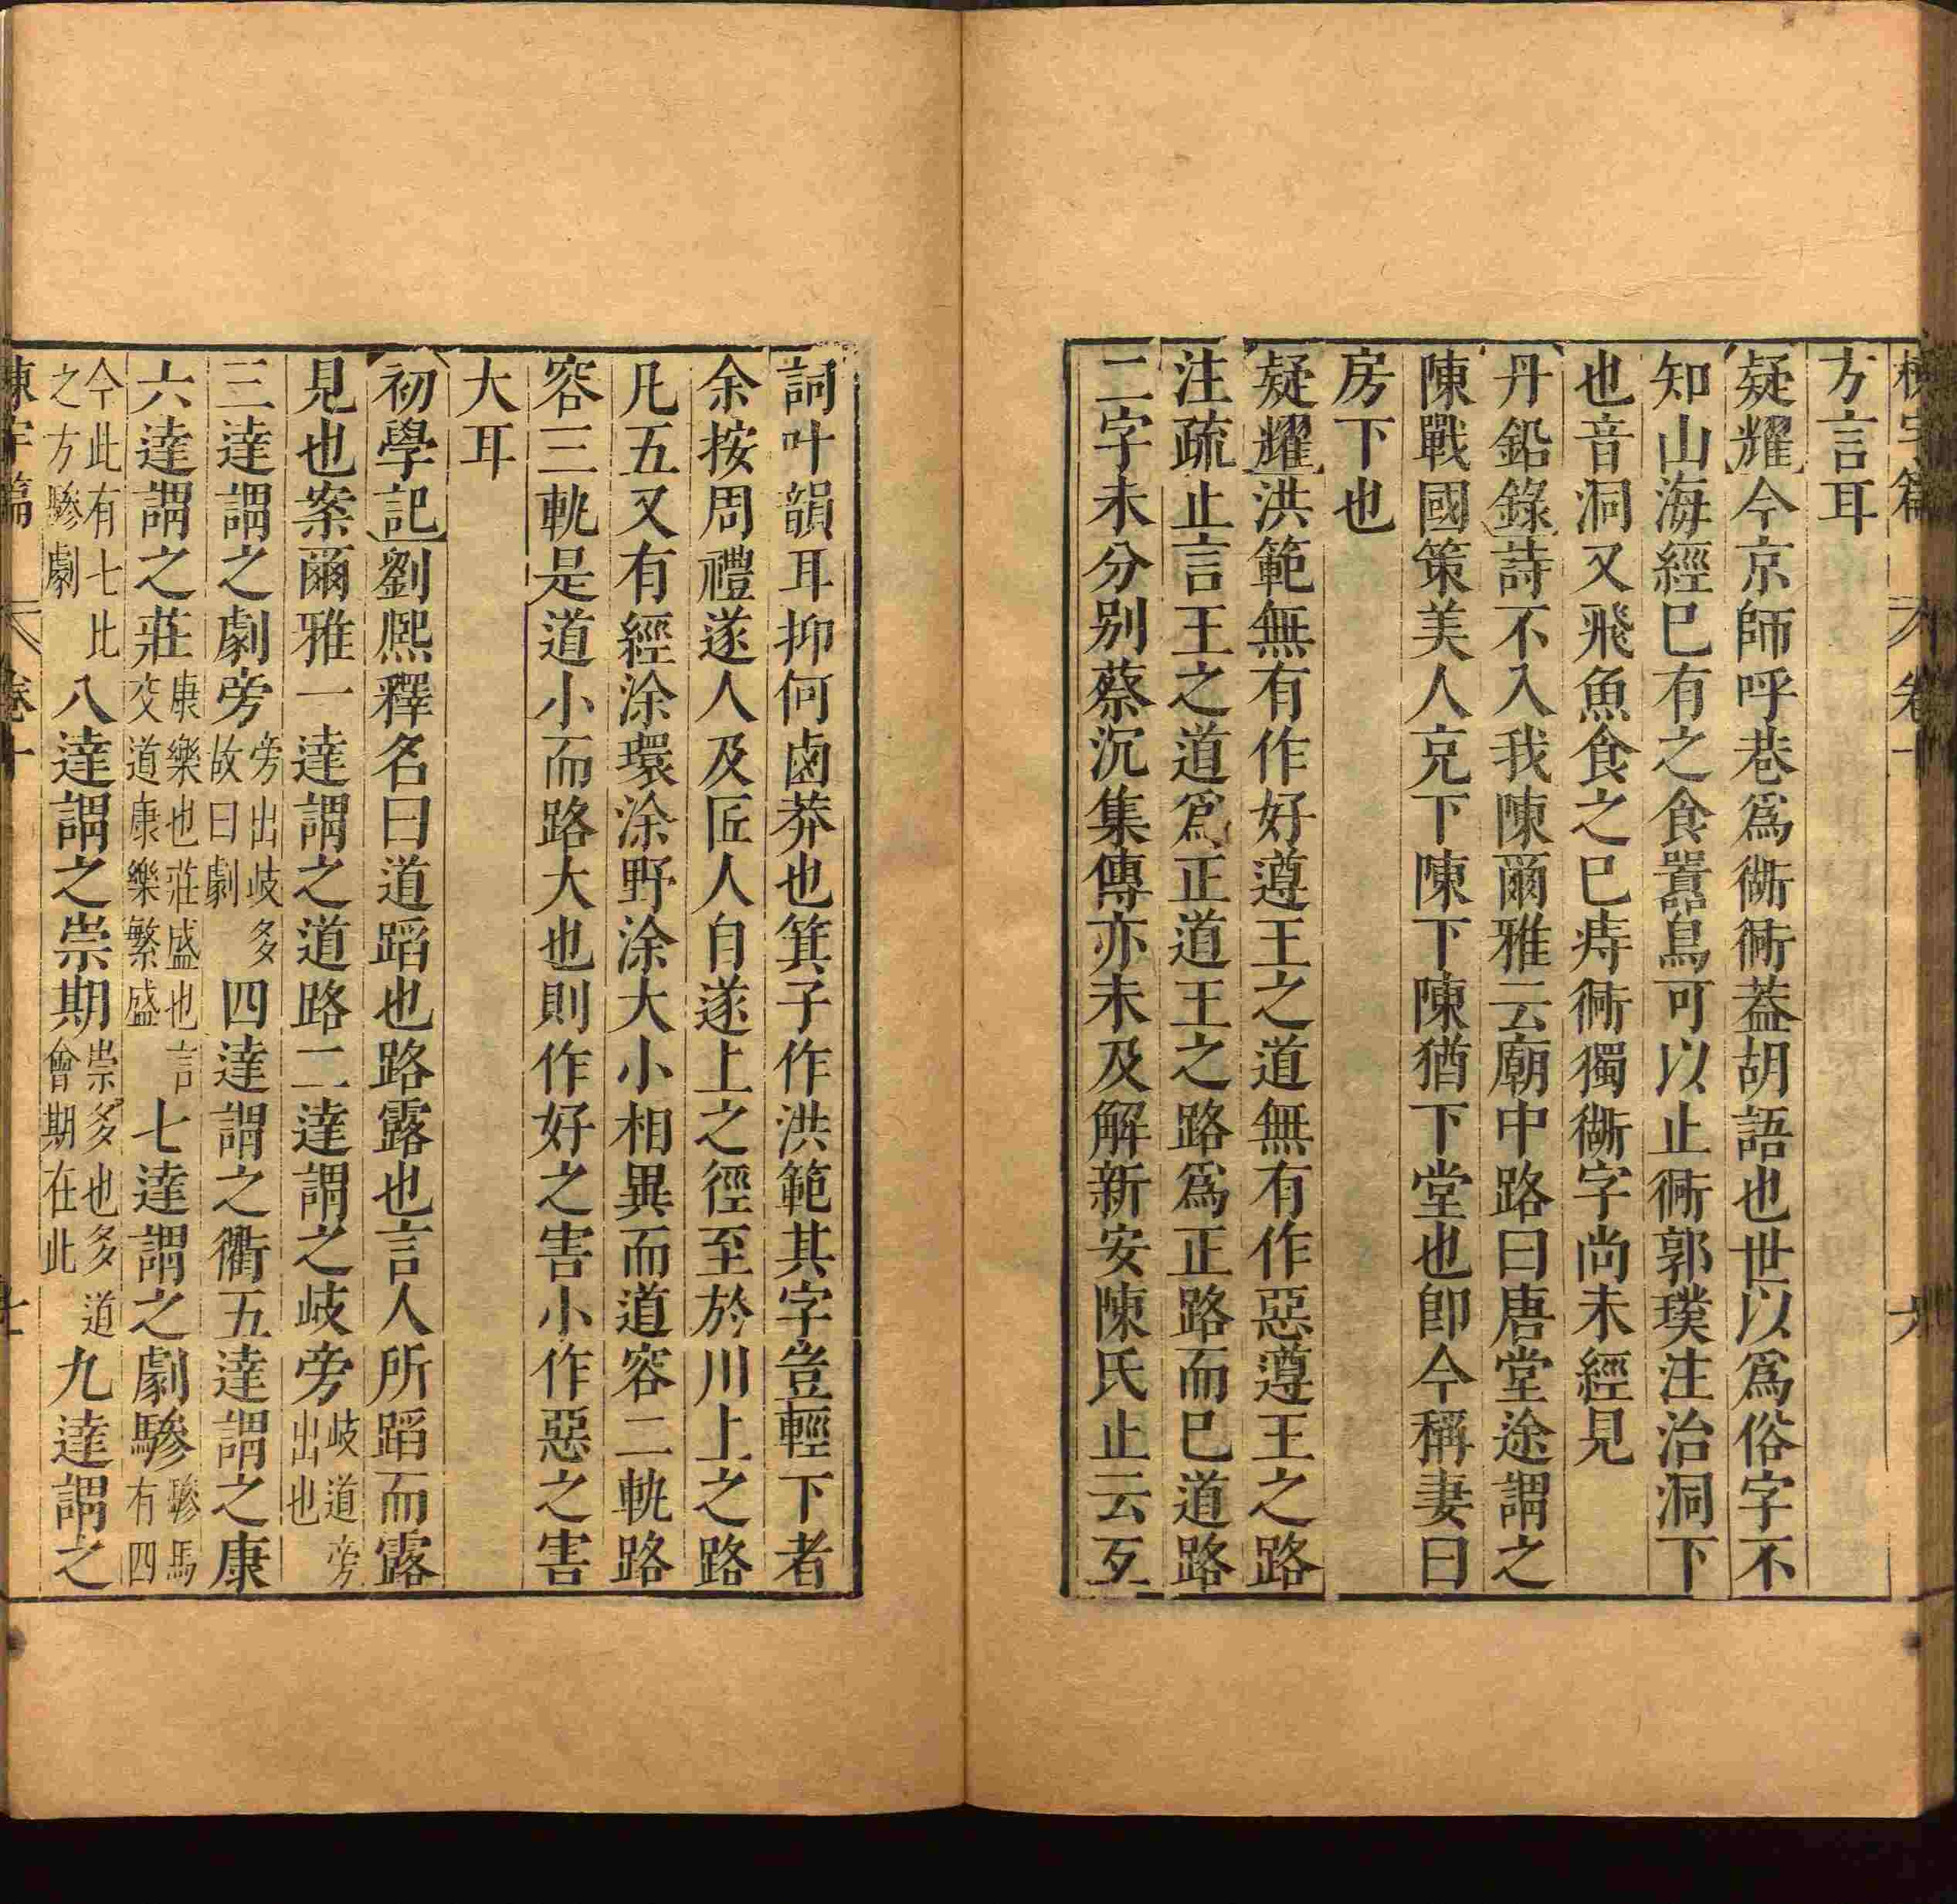 方言耳
疑耀今京師呼巷為衚衕蓋胡語也世以為俗字不
知山海經巳有之食嚻鳥可以止衕郭璞注治洞下
也音洞又飛魚食之巳痔衕獨衚字尚未經見
丹鉛錄詩不入我陳爾雅云廟中路曰唐堂途謂之
陳戰國策美人充下陳下陳猶下堂也卽今稱妻曰
房下也
疑耀洪範無有作好遵王之道無有作惡遵王之路
注疏止言王之道爲正道王之路為正路而巳道路
二字未分别蔡沉集傳亦未及解新安陳氏止云叐
詞叶韻耳抑何鹵莽也箕子作洪範其字豈輕下者
余按周禮遂人及匠人自遂上之徑至於川上之路
凡五又有經涂環涂野涂大小相異而道容二軌路
容三軌是道小而路大也則作好之害小作惡之害
大耳
初學記劉熈釋名曰道蹈也路露也言人所蹈而露
見也案爾雅一達謂之道路二達謂之歧旁歧道旁出也
三達謂之劇旁旁出歧多故曰劇四達謂之衢五達謂之康
六達謂之莊康樂也莊盛也言交道康樂繁盛七達謂之劇驂驂馬有四
今此有七比之方驂劇八達謂之崇期崇多也多道會期在此九達謂之